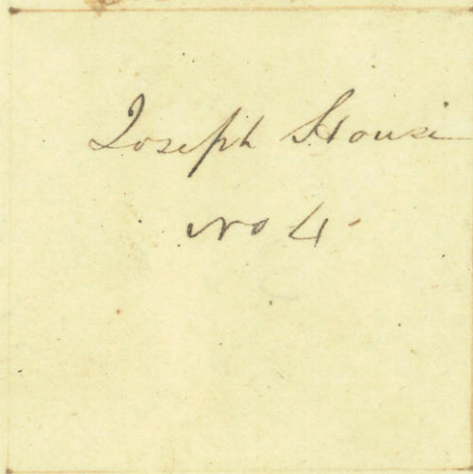 Joseph House
No 4